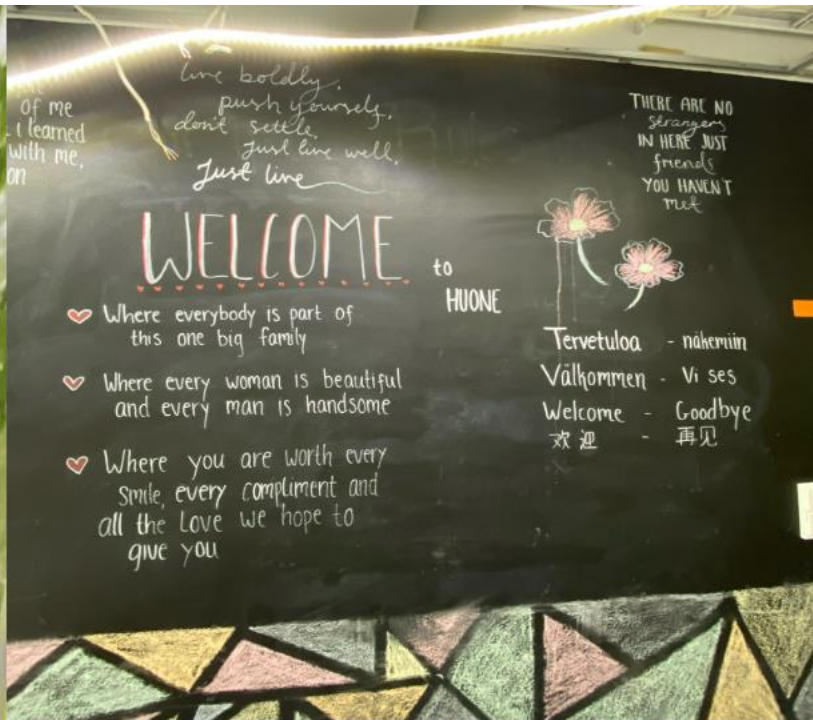 of me
i learned
with me,
on
live boldly,
push yourself,
don't settle,
Just live well,
Just live
THERE ARE NO
strangers
IN HERE JUST
friends
YOU HAVEN'T
met
WELCOME to
HUONE
Where everybody is part of
this one big family
Where every woman is beautiful
and every man is handsome
Where you are worth every
smile, every compliment and
all the love we hope to
give you
Tervetuloa - nähemiin
Välkommen - Vi ses
Welcome - Goodbye
欢迎 - 再见